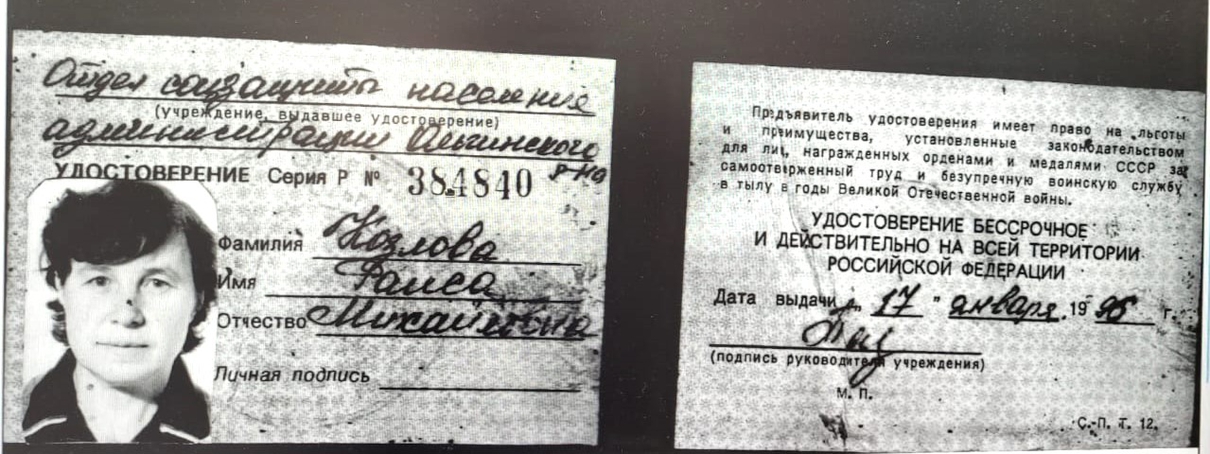 Отдел соцзащиты населения
(учреждение, выдавшее удостоверение)
администрации Ольгинского
р-на
УДОСТОВЕРЕНИЕ Серия Р № 384840
Фамилия Козлова
Имя Раиса
Отчество Михайловна
Личная подпись
Предъявитель удостоверения имеет право на льготы
и преимущества, установленные законодательством
для лиц, награжденных орденами и медалями СССР за
самоотверженный труд и безупречную воинскую службу
в тылу в годы Великой Отечественной войны.
УДОСТОВЕРЕНИЕ БЕССРОЧНОЕ
И ДЕЙСТВИТЕЛЬНО НА ВСЕЙ ТЕРРИТОРИИ
РОССИЙСКОЙ ФЕДЕРАЦИИ
Дата выдачи „ 17 " января 1996 г.
(подпись руководителя учреждения)
М. П.
С.-П. Т. 12.